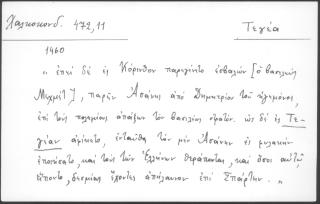 Χαλκοκονδ. 472,11 Τεγέα
1460
„ ἐπεὶ δὲ ἐς Κόρινθον παρεγένετο ἐσβαλὼν [ὁ βασιλεὺς
Μεχμὲτ], παρῆν Ἀσάνης ἀπὸ Δημητρίου τοῦ ἡγεμόνος,
ἐπὶ τοὺς πολεμίους ἀπάξων τὸν βασιλέως στρατόν. ὡς δὲ ἐς Τε-
γέαν ἀφίκετο, ἐνταῦθα τὸν μὲν Ἀσάνην ἐς φυλακὴν
ἐποιήσατο, καὶ τοὺς τῶν Ἑλλήνων θεράποντας, καὶ ὅσοι αὐτῷ
εἵποντο, δεσμίους ἔχοντες ἀπήλαυνον ἐπὶ Σπάρτην. „